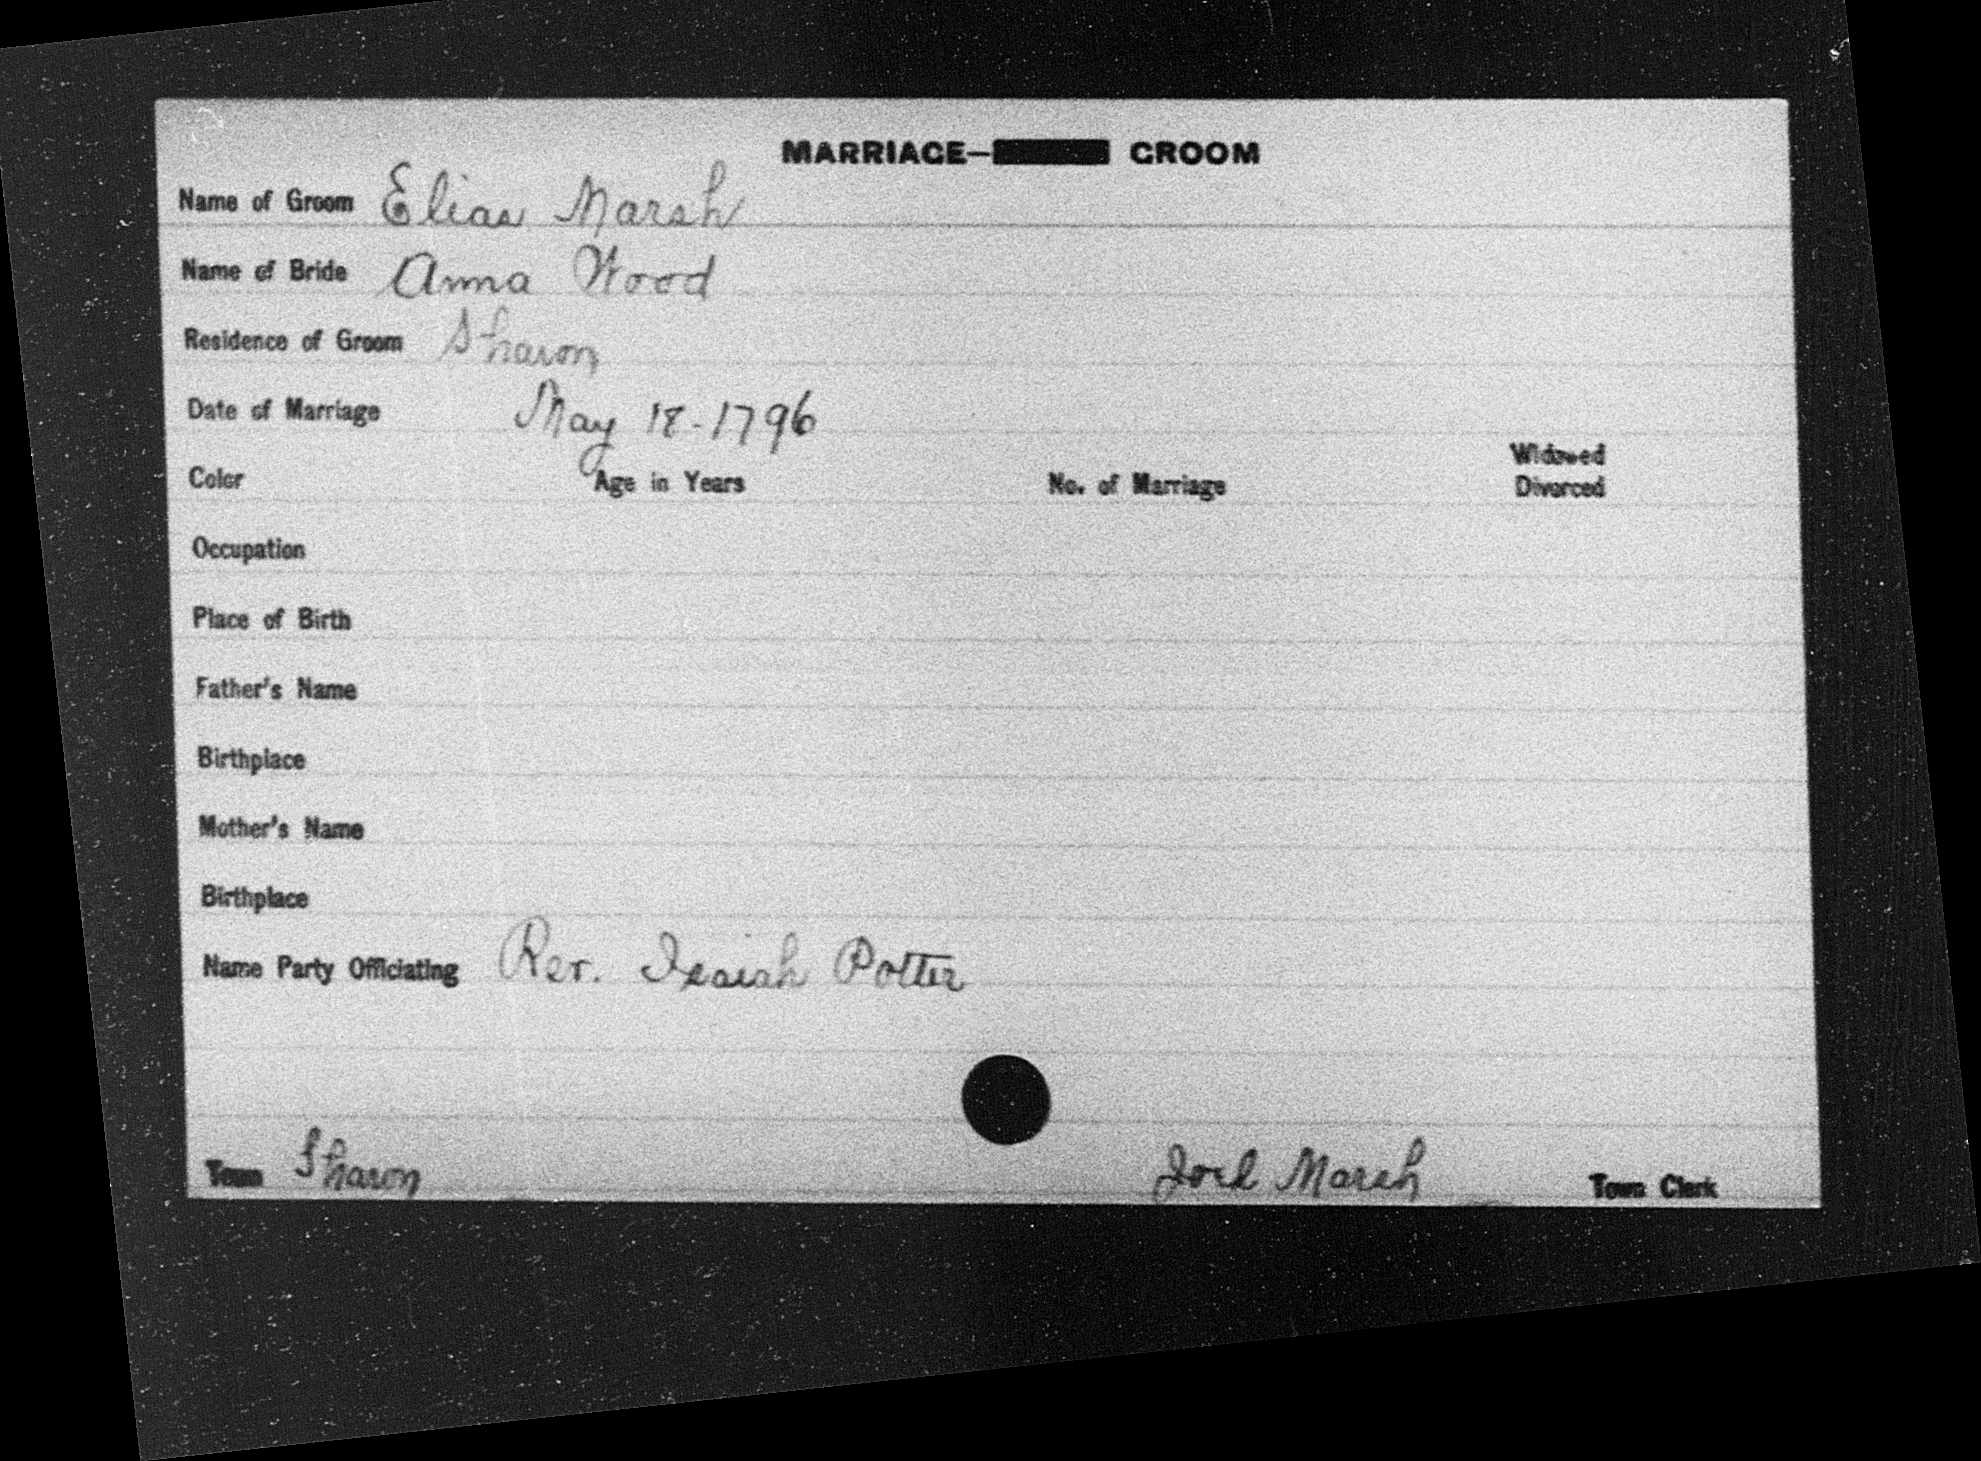 MARRIAGE— GROOM
Name of Groom Elias Marsh
Name of Bride Anna Wood
Residence of Groom Sharon
Date of Marriage May 18-1796
Widowed
Color Age in Years No. of Marriage Divorced
Occupation
Place of Birth
Father's Name
Birthplace
Mother's Name
Birthplace
Name Party Officiating Rev. Isaiah Potter
Town Sharon Joel Marsh Town Clerk